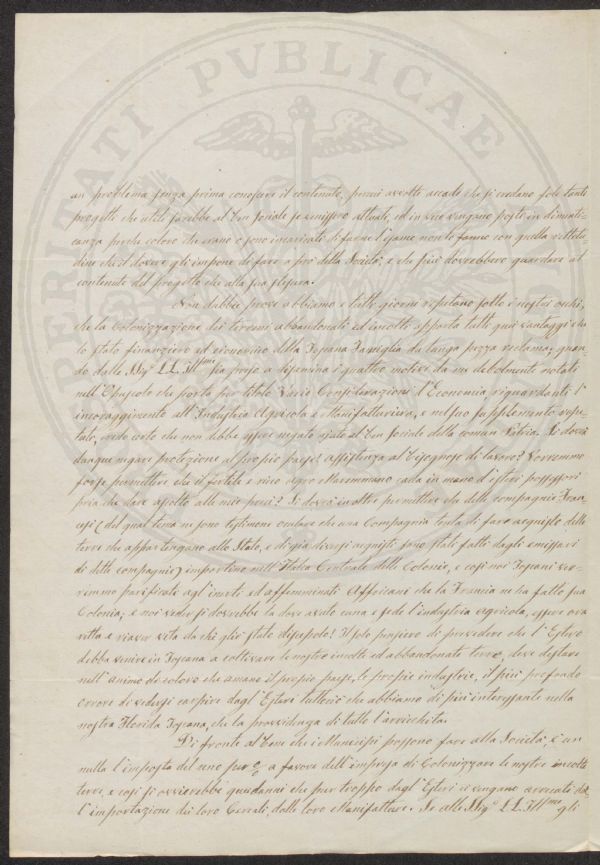 PERITATI PVBLICAE
un problema senza prima conoscere il contenuto, perciò avvolte accade che si credano fole tanti
progetti che utili sarebbe al ben sociale se venissero attuati, ed in vece vengono posti in dimenti-
canza perche coloro che erano e sono incaricati di farne l'esame non lo fanno con quella rettitu-
dine che il dovere gli impone di fare a prò della Società, e che più dovrebbero guardare al
contenuto del progetto che alla sua
Non dubbie prove abbiamo e tutti giorni reputano sotto i nostri occhi,
che la Colonizzazione dei terreni abbandonati ed incolti apporta tutti quei vantaggi che
lo stato finanziero ed economico della Toscana Famiglia da lunga pezza reclama; quan-
do dalle SSig.e LL. Ill.me sia preso a disamina i quattro motivi da me debolmente notati
nell'Opuscolo che porta per titolo Varie Considerazioni l'Economia riguardanti l'
incoraggimento all'Industria Agricola e Manifatturiera, e nel suo supplemento repu-
tato, credo certo che non debba essere negato ajuto al ben sociale della comun Patria. Si dovrà
dunque negare protezione al proprio paese! assistenza al bisognoso di lavoro? Vorremmo
forse permettere che il fertile e ricco agro Maremmano cada in mano d'esteri possessori
pria che dare ascolto alle mie preci? Si dovrà inoltre permettere che delle compagnie Fran-
cesi (del qual tema ne sono testimone oculare che una Compagnia tenta di fare acquisto delle
terre che appartengano allo Stato, e di già diversi acquisti sono stati fatti dagli emissari
di dette compagnie) impiantino nell'Italia Centrale delle Colonie, e così noi Toscani ver-
remmo parificati agl'inerti ed affemminati Affricani che la Francia ne ha fatto sua
Colonia; e noi veder si dovrebbe la dove avuto cuna e sede l'industria agricola, essere ora
retta e riaver vita da chi gli è stato discepolo! Il solo pensiero di prevedere che l'Estero
debba venire in Toscana a coltivare le nostre incolte ed abbandonate terre, deve destare
nell'animo di coloro che amano il proprio paese, le proprie industrie, il più profondo
orrore di vedersi carpire dagl'Esteri tuttociò che abbiamo di più interessante nella
nostra Florida Toscana, che la provvidenza di tutto l'arricchita.
Di fronte al bene che i Municipi possono fare alla Società, è un
nulla l'imposta del uno per % a favore dell'impresa di Colonizzare le nostre incolte
terre, e così si ovvierebbe quei danni che pur troppo dagl'Esteri ci vengano arrecati dal
l'importazione dei loro Cereali, dalle loro Manifatture. Se alle SSig.e LL. Ill.me gli